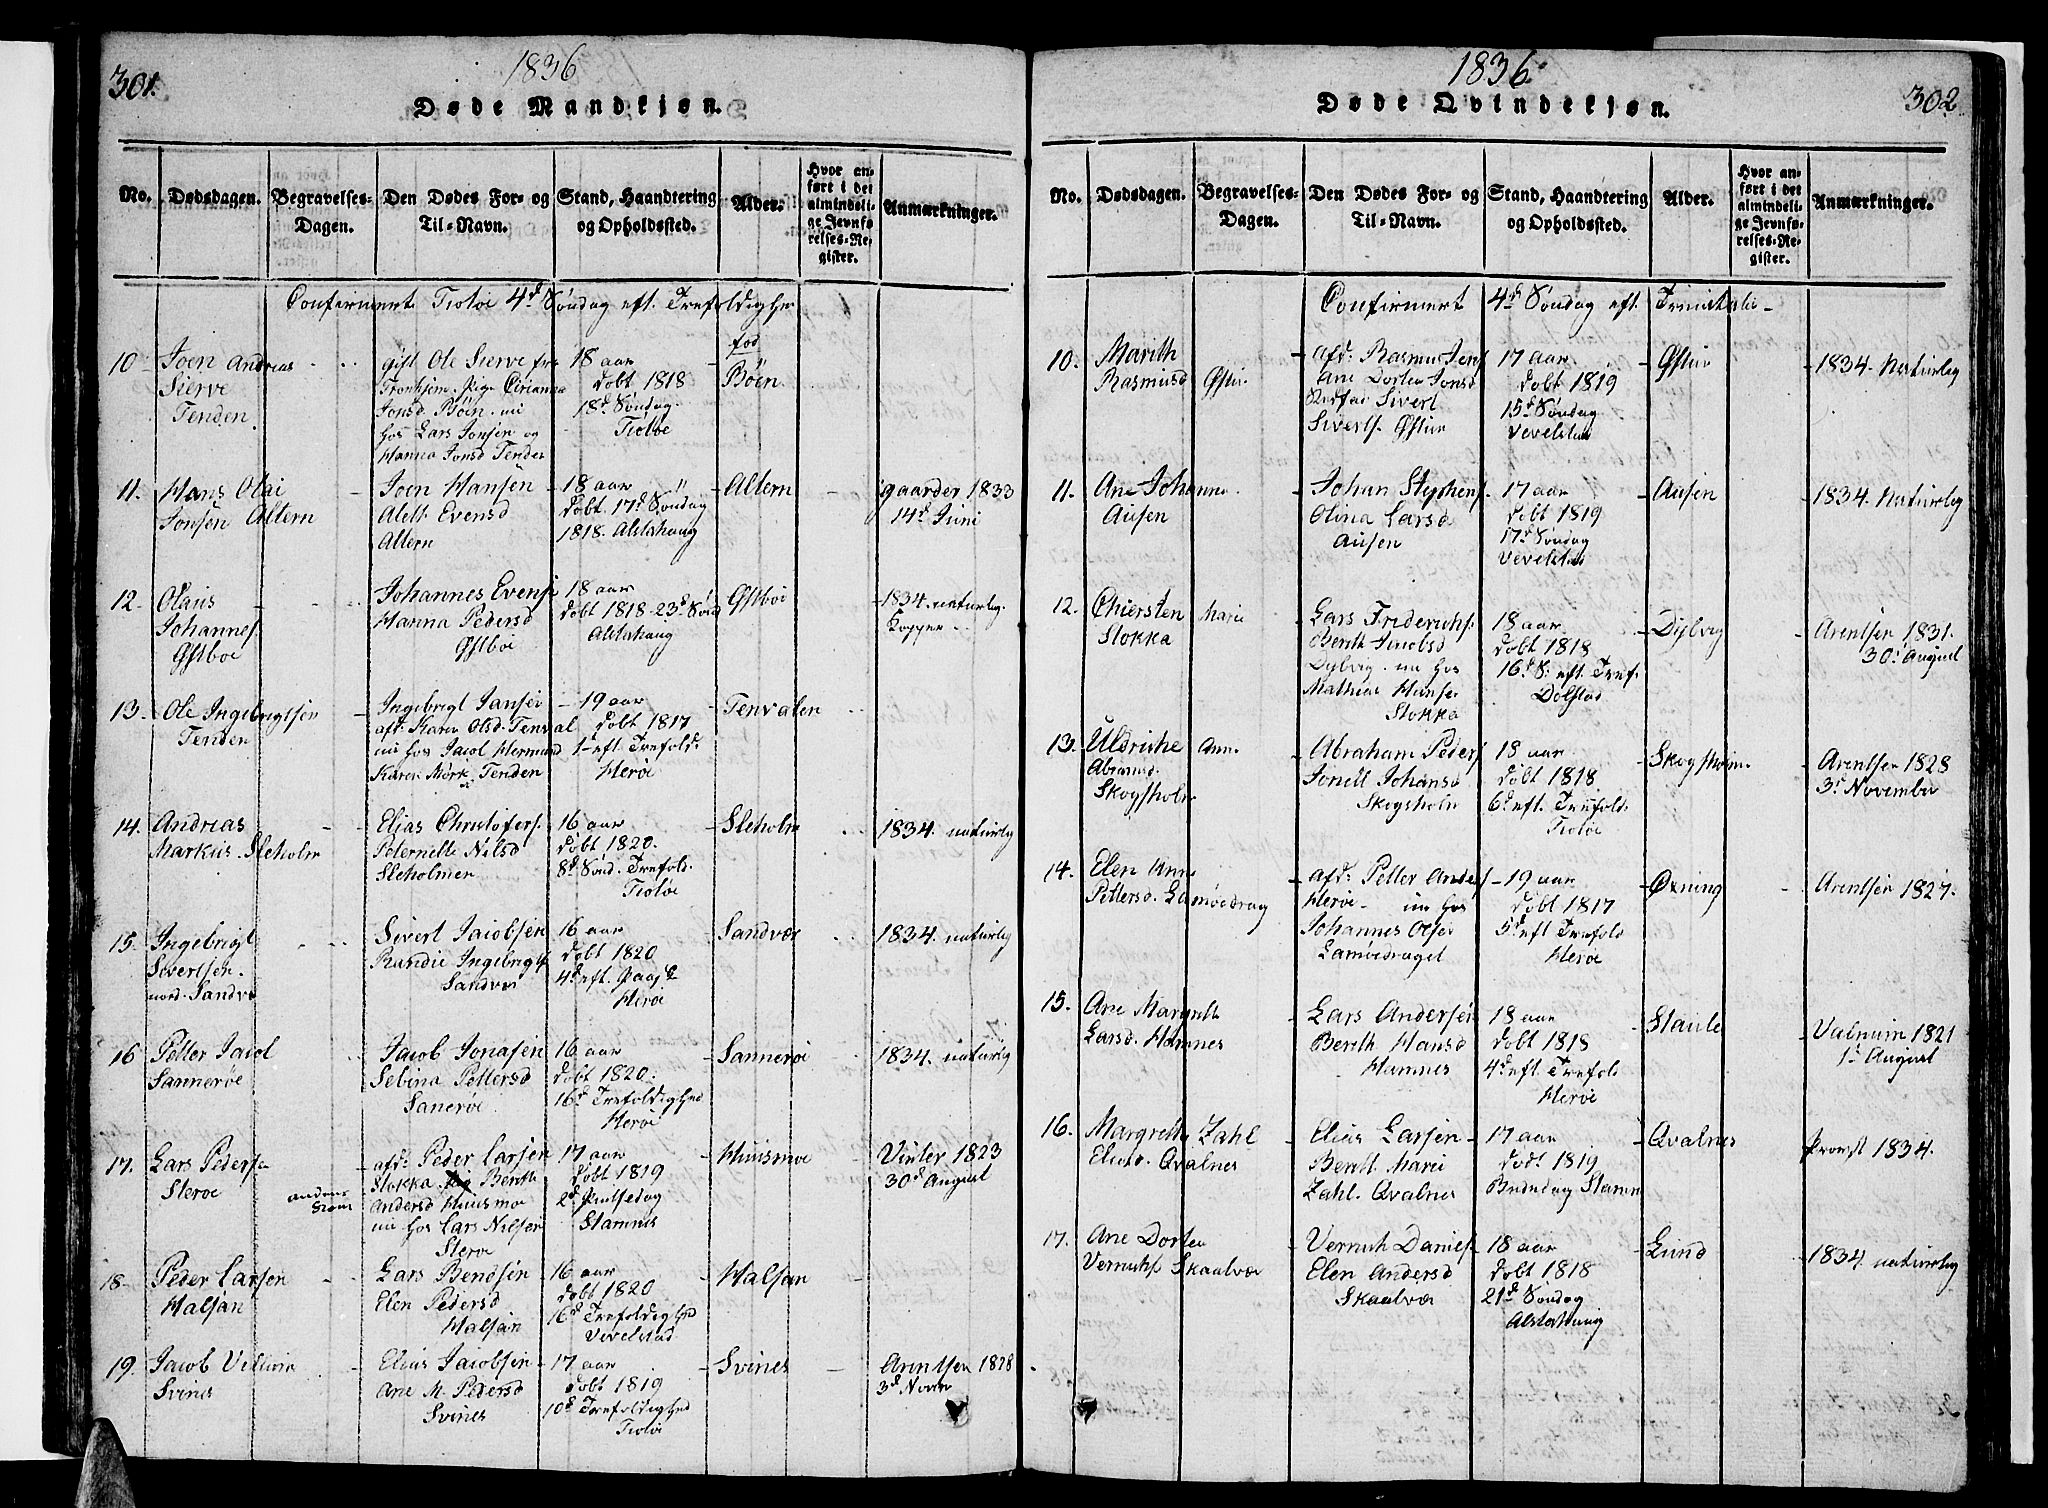 301.
1836
Døde Mandkjøn.
No.
Dødsdagen.
Begravelses-
Dagen.
Den Dødes For- og
Til-Navn.
Stand, Haandtering
og Opholdssted.
Alder.
Hvor an-
ført i det
almindeli-
ge Jevnfø-
relses-Re-
gister.
Anmærkninger.
Confirmert Tiøtøe 4d Søndag eft. Trefoldighe
10
Joen Andreas
Sierve
Tenden
gift Ole Sierve fra
Tronhiem Pige Cirianna
Jonsd Böen. nu
hos Lars Jonsen og
Hanna Jonsd Tenden
18 aar
døbt 1818
18d Søndag.
Tiøtøe
fød
Böen
11.
Hans Olai
Jonsen Altern
Joen Hansen
Alett Evensd
Altern
18 aar
døbt. 17d Søndag
1818. Alstahoug
Altern
gaarder 1833
14d Juni
12.
Olaus
Johannes.
Østboe
Johannes Evens.
Hanna Pedersd
Østboe
18 aar
døbt 1818-23d Sønd
Alstahaug
Østboe
1834. naturlig.
Kopper
13.
Ole Ingebrigtsen
Tenden
Ingebrigt Jansen
afd: Karen Olsd. Tenval
nu hos Jacob Hermand
Karen Mörk. Tenden
19 aar
døbt 1817
1 eft. Trefold.
Herøe
Tenvalen
14.
Andreas
Markus. Sleholm
Elias Christofers.
Peternelle Nilsd
Sleholmen
16 aar
døbt 1820.
8d Sønd. Trefold.
Tiøtøe
Sleholm
1834. naturlig
15.
Ingebrigt
Sivertsen.
nord. Sandvæ
Sivert Jacobsen
Randie Ingebrigts
Sandvær
16 aar
døbt 1820
4d eft. Paaske
Herøe
Sandvær
1834. naturlig
16
Petter Jacob
Sannerøe
Jacob Jonasen
Sebina Pettersd
Sanerøe
16 aar
døbt 1820.
16d Trefoldighed
Herøe
Sannerøe
1834. naturlig
17.
Lars Peders
Sterøe
afd: Peder Larsen
Slokka Berith
Andersd Huusmoe
nu hos Lars Nilsen
Sterøe
17 aar
døbt 1819
2d Pintsedag
Stamnes
Huusmoe
Vinter 1823
30d August
18
Peder Larsen
Halsan
Lars Bendsen
Elen Pedersd
Halsan
16 aar
døbt 1820
16d Trefoldighed
Vevelstad
Halsan
19.
Jacob Velluin
Svines
Elias Jacobsen
Ane M. Pedersd
Svines
17 aar
døbt 1819
10d Trefoldighed
Tiøtøe
Svines
Arentsen 1828
3d Novem
1836
302
Døde Qvindekjøn.
No.
Dødsdagen.
Begravelses-
Dagen.
Den Dødes For- og
Til-Navn.
Stand, Haandtering
og Opholdssted.
Alder.
Hvor an-
ført i det
almindeli-
ge Jevnfø-
relses-Re-
gister.
Anmærkninger.
Confirmert 4d Søndag eft. Trinitatis
10.
Marith
Rasmusd Østur
afd: Rasmus Jens
Ane Dorten Jonsd
Sivert
Siverts. Østur
17 aar
døbt 1819
15d Søndag
Vevelstad
Østur
1834. Naturlig
11.
Ane Johanne
Ausen
Johan Stephens.
Olina Larsd
Ausen
17 aar
døbt 1819
17d Søndag
Vevelstad
Ausen
1834. Naturlig
12.
Chiersten Marie
Slokka
Lars Friderichs.
Berith Jacobsd
Dybvig. nu hos
Mathias Hansen
Slokka
18 aar
døbt 1818
16d S: eft. Tref.
Dolstad
Dybvig
Arentsen 1831.
30d August
13.
Uldriche Anne
Abramsd.
Skogsholm
Abraham Peders
Jonell Johansd
Skogsholm
18 aar
døbt 1818
6d eft. Trefold.
Tiøtøe
Skogsholm
Arentsen 1828
3d November
14.
Elen Anne
Pettersd. Lamøedrag
afd: Petter Anders
Herøe. nu hos
Johannes Olsen
Lamøedraget
19 aar
døbt 1817
5d eft Trefold
Herøe
Oxning
Arentsen 1827.
15.
Ane Margreth
Larsd. Hamnes
Lars Andersen
Berith Hansd
Hamnes
18 aar
døbt 1818
4d eft. Trefold
Herøe
Staule
Valnuim 1821
1d August
16.
Margrethe Zahl
Eliasd. Qvalnes
Elias Larsen
Berith Marie
Zahl. Qvalnes
17 aar
døbt 1819
Bededag Stamn
Qvalnes
Provst 1834.
17.
Ane Dorten
Vernichs Skaalvær
Vernich Daniels.
Elen Andersd
Skaalvær
18 aar
døbt 1818
21d Søndag
Alstahaug
Lund
1834. naturlig